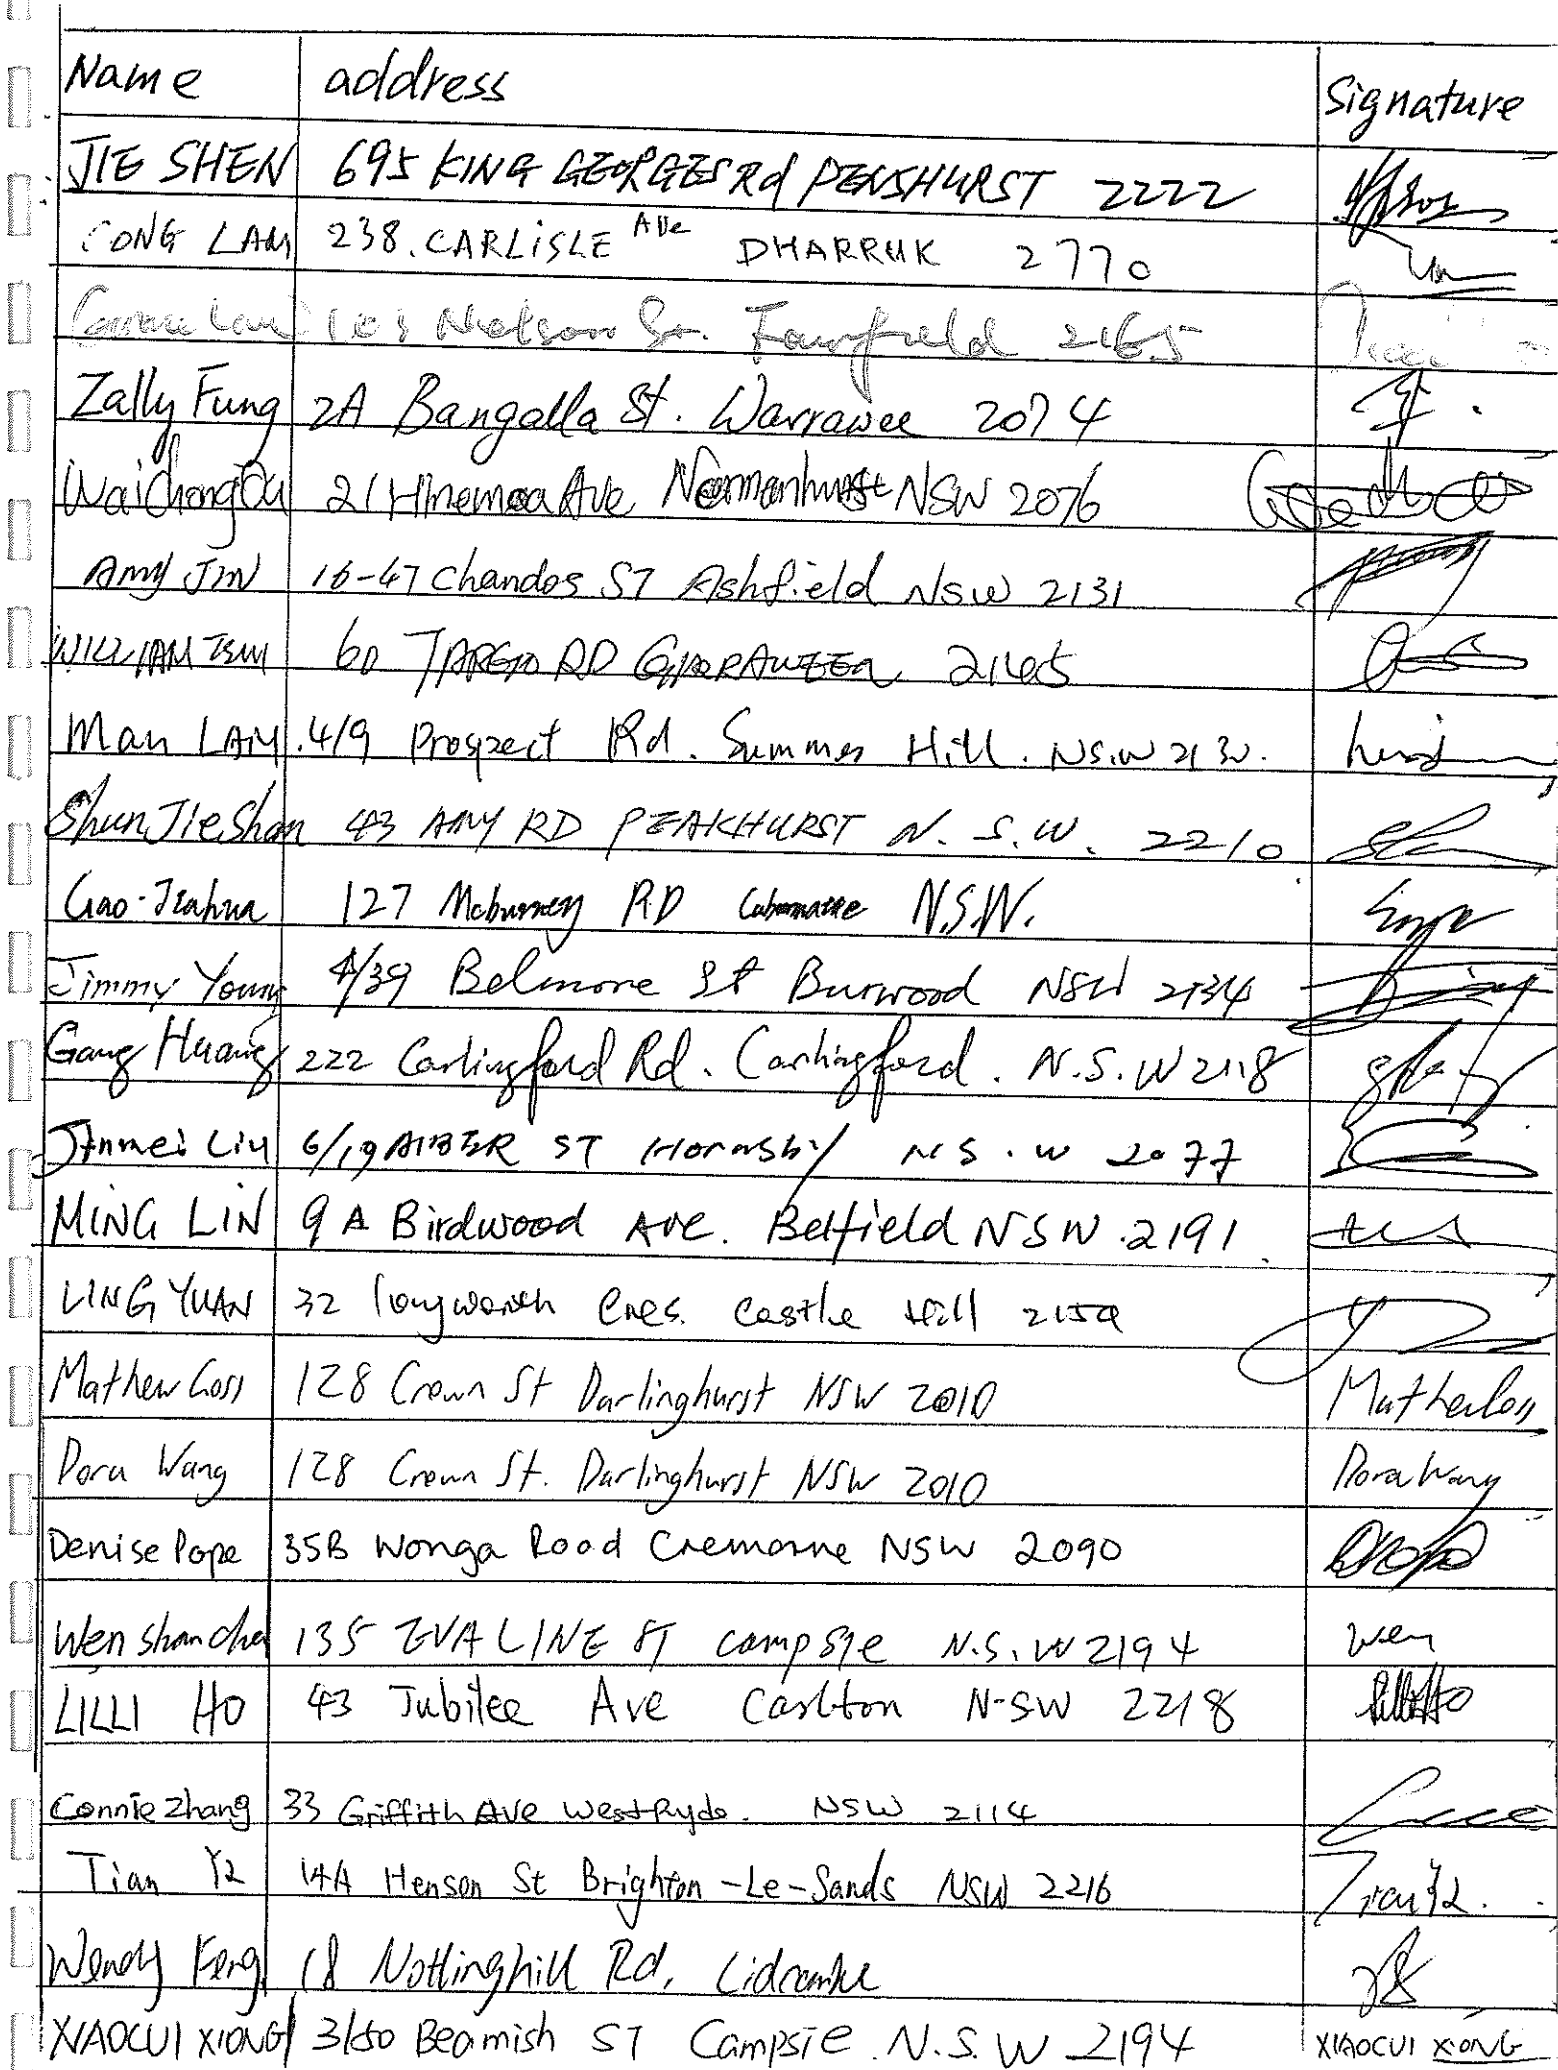 Name address Signature
JIE SHEN 695 KING GEORGES Rd PENSHURST 2222
CONG LAM 238. CARLISLE Ave DHARRUK 2770
Nelson St. Fairfield 2165
Zally Fung 2A Bangalla St. Warrawee 2074
Wai Chong 21 Hinemoa Ave Normanhurst NSW 2076
Amy JIN 16-47 Chandos ST Ashfield NSW 2131
WILLIAM TSUI 60 TARGO RD GIRRAWEEN 2145
Man LAM. 4/9 Prospect Rd. Summer Hill. N.S.W 2130.
Shun Jie Shan 43 AMY RD PEAKHURST N. S. W. 2210
Gao-Jiahua 127 Mcburney RD Cabramatta N.S.W.
Jimmy Young 4/39 Belmore St Burwood NSW 2134
Gang Huang 222 Carlingford Rd. Carlingford. N.S.W 2118
Jinmei Liu 6/19 ALBER ST Hornsby N S . W 2077
MING LIN 9 A Birdwood Ave. Belfield NSW .2191
LING YUAN 32 longworth Cres. Castle Hill 2154
Mathew Goss 128 Crown St Darlinghurst NSW 2010
Dora Wang 128 Crown St. Darlinghurst NSW 2010 Dora Wang
Denise Pope 35B Wonga Road Cremorne NSW 2090
Wen shan 135 EVALINE ST campsie N.S.W 2194 wen
LILLI HO 43 Jubilee Ave Carlton N-SW 2218
Connie Zhang 33 Griffith Ave West Ryde. NSW 2114
Tian Yi 14A Henson St Brighton-Le-Sands NSW 2216 Tian Yi.
Wendy Feng 18 Nottinghill Rd, Lidcombe
XIAOCUI XIONG 3/50 Beamish ST Campsie. N.S.W 2194 XIAOCUI XIONG